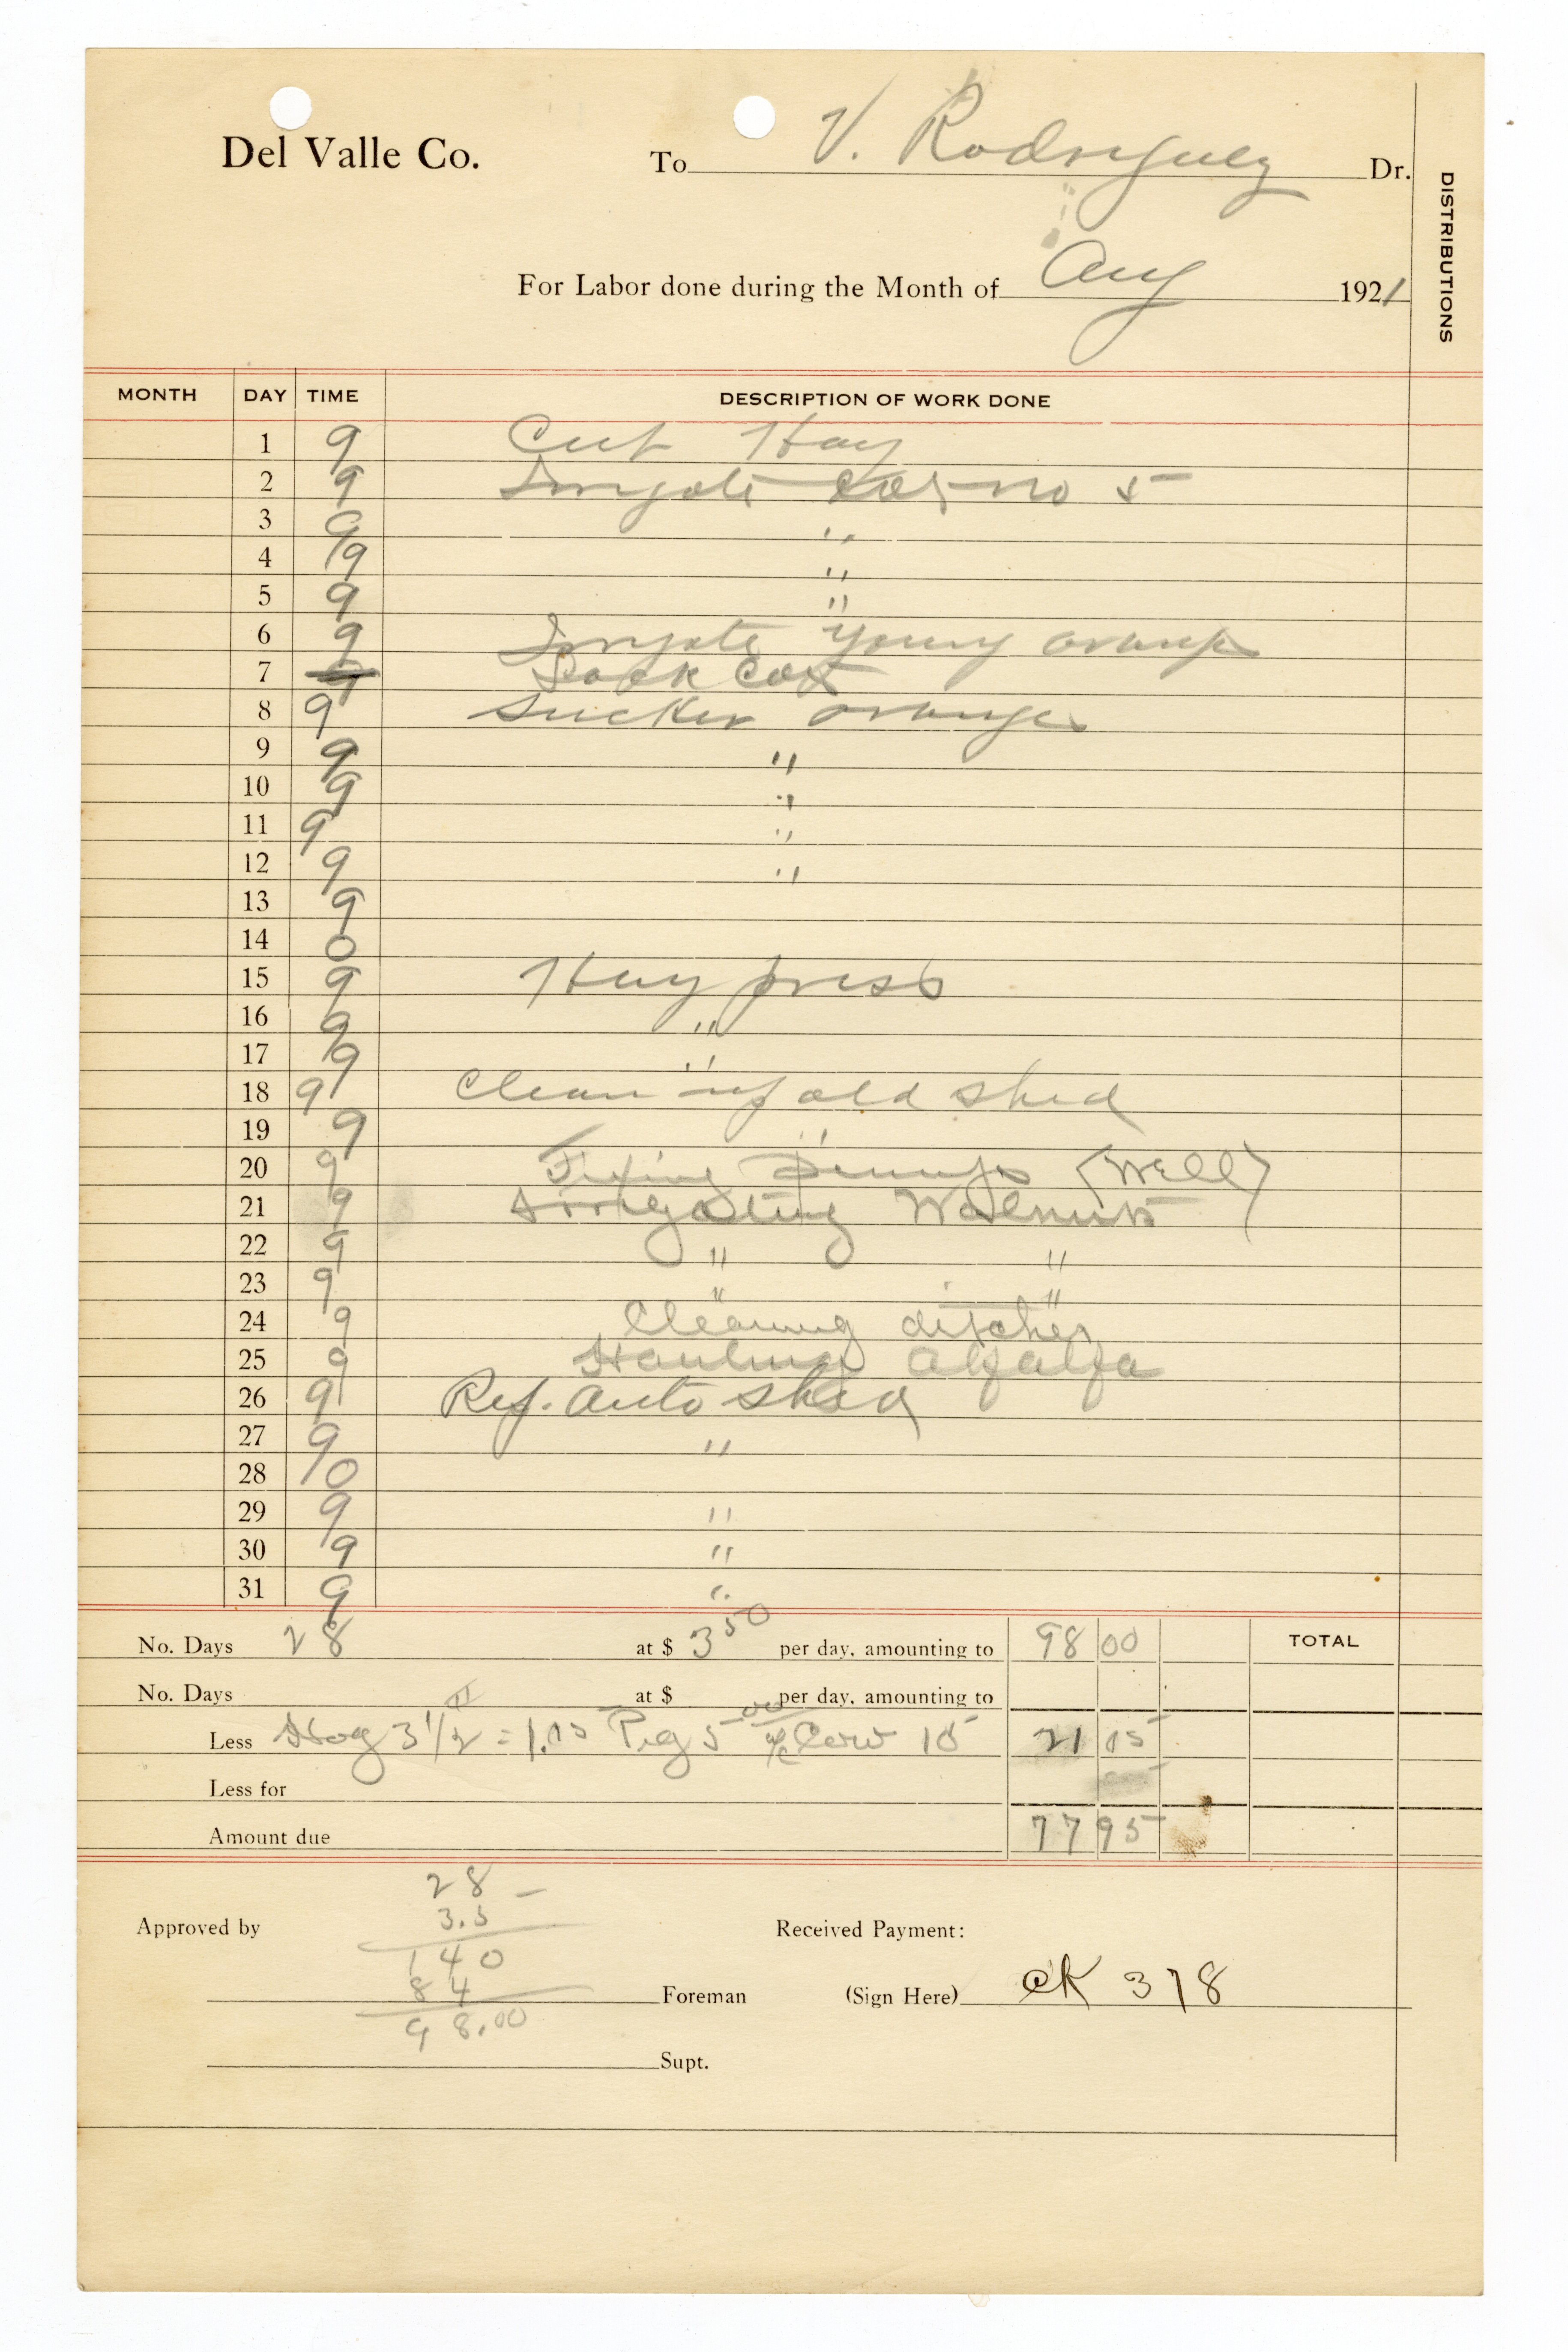 Del Valle Co. To V. Rodriguez Dr.
For Labor done during the Month of Aug 1921
DISTRIBUTIONS
MONTH DAY TIME DESCRIPTION OF WORK DONE
1 9 Cut Hay
2 9 no 5
3 9 "
4 9 "
5 9 "
6 9 young
7
8 9 Sucker oranges
9 9 "
10 9 "
11 9 "
12 9 "
13 9
14 0
15 9 Hay press
16 9 "
17 9 "
18 9 Clean up old shed
19 9 "
20 9 Fixing (Well)
21 9 Irrigating Walnuts
22 9 " "
23 9 " "
24 9 Cleaning ditches
25 9 Hauling alfalfa
26 9 Rep. auto shed
27 9 "
28 0
29 9 "
30 9 "
31 9 "
No. Days 28 at $ 3 50 per day, amounting to 98 00 TOTAL
No. Days at $ per day, amounting to
Less Hog 3 1/2 = Pig 5 00 Cow 15 21 15
Less for
Amount due 77 95
28
3.5
140
84
98.00
Approved by Received Payment:
Foreman (Sign Here) CK 378
Supt.